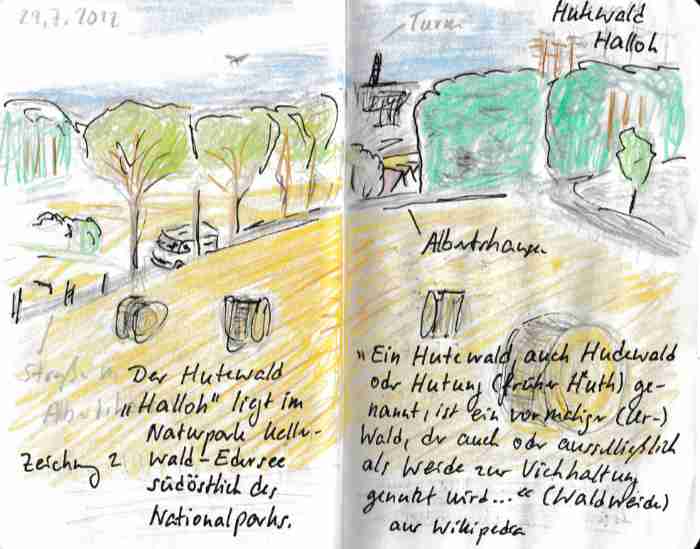 29.7.2012
Der Hutewald
"Halloh" liegt im
Naturpark Keller-
wald-Edersee
südöstlich des
Nationalparks.
Zeichnung 2
Straße n.
Turm
Hutewald
Halloh
Albertshausen
"Ein Hutewald, auch Hudewald
oder Hutung (früher Huth) ge-
nannt, ist ein vormaliger (Ur-)
Wald, der auch oder ausschließlich
als Weide zur Viehhaltung
genutzt wird..." (Waldweide)
aus Wikipedia